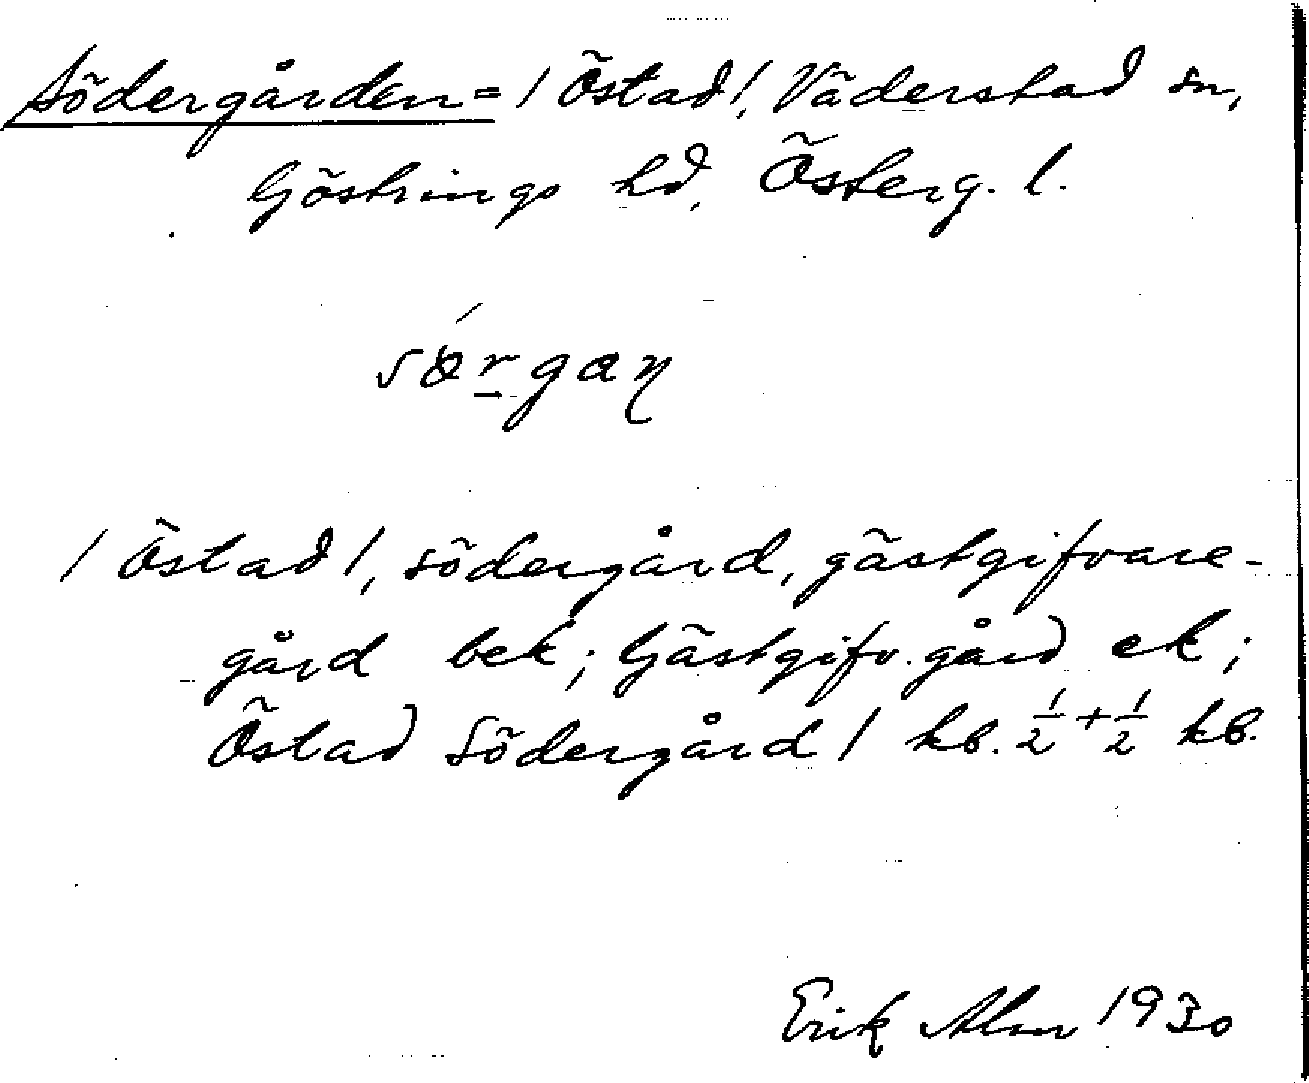 Södergården = / Östad /, Väderstad sn,
Göstrings hd, Österg. l.
/ Östad /, södergård, gästgifvare-
gård bek; Gästgifv. gård ek;
Östad Södergård / kb. 1/2 + 1/2 kb.
Erik Alm 1930